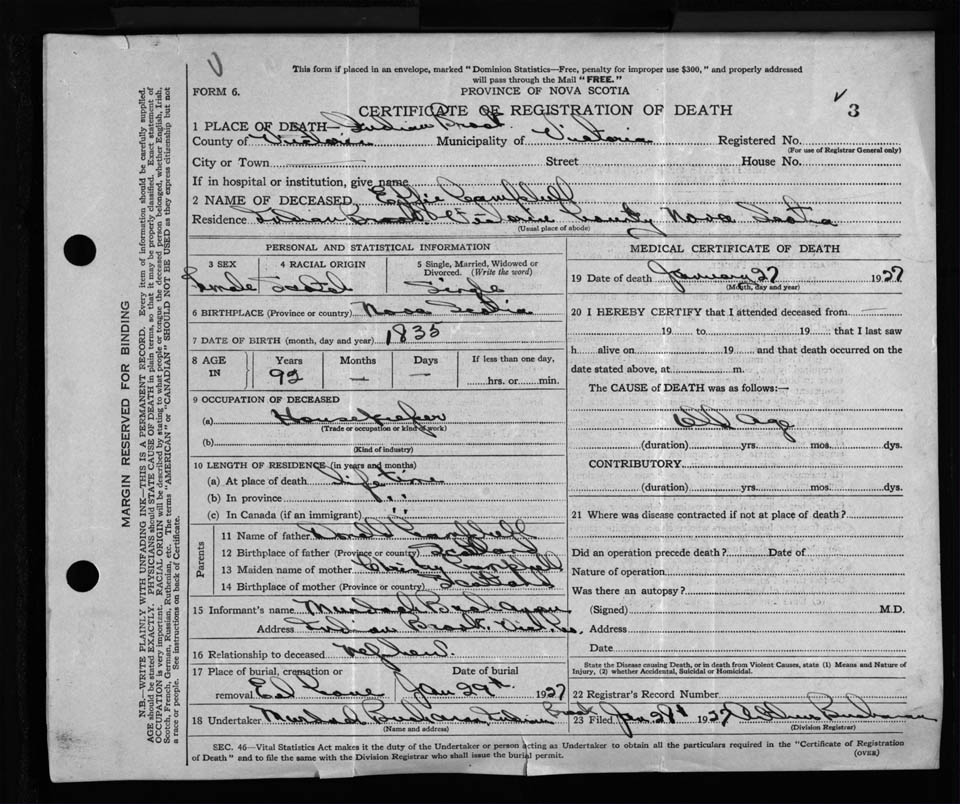 This form if placed in an envelope, marked "Dominion Statistics—Free, penalty for improper use $300," and properly addressed
will pass through the Mail "FREE."
FORM 6.
PROVINCE OF NOVA SCOTIA
CERTIFICATE OF REGISTRATION OF DEATH
3
1 PLACE OF DEATH— Indian Brook
County of Victoria Municipality of Victoria Registered No.
(For use of Registrar General only)
City or Town Street House No.
If in hospital or institution, give name
2 NAME OF DECEASED, Effie Campbell
Residence Indian Brook Victoria County Nova Scotia
(Usual place of abode)
PERSONAL AND STATISTICAL INFORMATION
3 SEX 4 RACIAL ORIGIN 5 Single, Married, Widowed or
Divorced. (Write the word)
Female Single
6 BIRTHPLACE (Province or country) Nova Scotia
7 DATE OF BIRTH (month, day and year) 1835
8 AGE IN Years Months Days If less than one day,
92 — — hrs. or min.
9 OCCUPATION OF DECEASED
(a) Housekeeper
(Trade or occupation or kind of work)
(b)
(Kind of industry)
10 LENGTH OF RESIDENCE (in years and months)
(a) At place of death Lifetime
(b) In province "
(c) In Canada (if an immigrant) "
Parents
11 Name of father Campbell
12 Birthplace of father (Province or country) Scotland
13 Maiden name of mother Christy Campbell
14 Birthplace of mother (Province or country) Scotland
15 Informant's name Murdoch Buchanan
Address Indian Brook, Vict. Co.
16 Relationship to deceased nephew.
17 Place of burial, cremation or Date of burial
removal Jan 29th 1927
18 Undertaker Murdoch Buchanan Indian Brook
(Name and address)
MEDICAL CERTIFICATE OF DEATH
19 Date of death January 27 1927
(Month, day and year)
20 I HEREBY CERTIFY that I attended deceased from
19 to 19 that I last saw
h alive on 19 and that death occurred on the
date stated above, at m.
The CAUSE of DEATH was as follows:—
Old Age
(duration) yrs. mos. dys.
CONTRIBUTORY
(duration) yrs. mos. dys.
21 Where was disease contracted if not at place of death?
Did an operation precede death? Date of
Nature of operation
Was there an autopsy?
(Signed) M.D.
Address
Date
State the Disease causing Death, or in death from Violent Causes, state (1) Means and Nature of
Injury, (2) whether Accidental, Suicidal or Homicidal.
22 Registrar's Record Number
23 Filed Jan. 29th 1927 Buchanan
(Division Registrar)
SEC. 46—Vital Statistics Act makes it the duty of the Undertaker or person acting as Undertaker to obtain all the particulars required in the "Certificate of Registration
of Death" and to file the same with the Division Registrar who shall issue the burial permit.
(OVER)
MARGIN RESERVED FOR BINDING
N.B.—WRITE PLAINLY WITH UNFADING INK—THIS IS A PERMANENT RECORD. Every item of information should be carefully supplied.
AGE should be stated EXACTLY. PHYSICIANS should STATE CAUSE OF DEATH in plain terms, so that it may be properly classified. Exact statement of
OCCUPATION is very important. RACIAL ORIGIN will be described by stating to what people or tongue the deceased person belonged, whether English, Irish,
Scotch, French, German, Russian, Ruthenian, etc. The terms "AMERICAN" or "CANADIAN" SHOULD NOT BE USED as they express citizenship but not
a race or people. See instructions on back of Certificate.